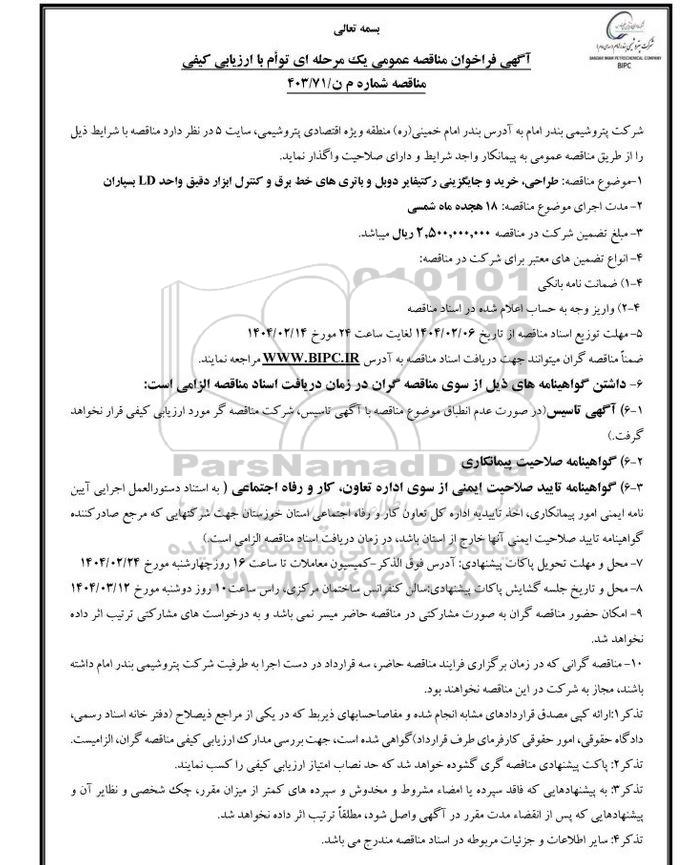 بسمه تعالی
شرکت پتروشیمی بندر امام
BANDAR IMAM PETROCHEMICAL COMPANY
BIPC
آگهی فراخوان مناقصه عمومی یک مرحله ای توأم با ارزیابی کیفی
مناقصه شماره م ن/۴۰۳/۷۱
شرکت پتروشیمی بندر امام به آدرس بندر امام خمینی(ره) منطقه ویژه اقتصادی پتروشیمی، سایت ۵ در نظر دارد مناقصه با شرایط ذیل
را از طریق مناقصه عمومی به پیمانکار واجد شرایط و دارای صلاحیت واگذار نماید.
۱-موضوع مناقصه: طراحی، خرید و جایگزینی رکتیفایر دوبل و باتری های خط برق و کنترل ابزار دقیق واحد LD بسپاران
۲- مدت اجرای موضوع مناقصه: ۱۸ هجده ماه شمسی
۳- مبلغ تضمین شرکت در مناقصه ۲,۵۰۰,۰۰۰,۰۰۰ ریال میباشد.
۴- انواع تضمین های معتبر برای شرکت در مناقصه:
۴-۱) ضمانت نامه بانکی
۴-۲) واریز وجه به حساب اعلام شده در اسناد مناقصه
۵- مهلت توزیع اسناد مناقصه از تاریخ ۱۴۰۴/۰۲/۰۶ لغایت ساعت ۲۴ مورخ ۱۴۰۴/۰۲/۱۴
ضمناً مناقصه گران میتوانند جهت دریافت اسناد مناقصه به آدرس WWW.BIPC.IR مراجعه نمایند.
۶- داشتن گواهینامه های ذیل از سوی مناقصه گران در زمان دریافت اسناد مناقصه الزامی است:
۶-۱) آگهی تاسیس(در صورت عدم انطباق موضوع مناقصه با آگهی تاسیس، شرکت مناقصه گر مورد ارزیابی کیفی قرار نخواهد
گرفت.)
۶-۲) گواهینامه صلاحیت پیمانکاری
ParsNamadData
۶-۳) گواهینامه تایید صلاحیت ایمنی از سوی اداره تعاون، کار و رفاه اجتماعی ( به استناد دستورالعمل اجرایی آیین
نامه ایمنی امور پیمانکاری، اخذ تاییدیه اداره کل تعاون کار و رفاه اجتماعی استان خوزستان جهت شرکتهایی که مرجع صادرکننده
گواهینامه تایید صلاحیت ایمنی آنها خارج از استان باشد، در زمان دریافت اسناد مناقصه الزامی است.)
۷- محل و مهلت تحویل پاکات پیشنهادی: آدرس فوق الذکر-کمیسیون معاملات تا ساعت ۱۶ روزچهارشنبه مورخ ۱۴۰۴/۰۲/۲۴
۸- محل و تاریخ جلسه گشایش پاکات پیشنهادی:سالن کنفرانس ساختمان مرکزی، راس ساعت۱۰ روز دوشنبه مورخ ۱۴۰۴/۰۳/۱۲
۹- امکان حضور مناقصه گران به صورت مشارکتی در مناقصه حاضر میسر نمی باشد و به درخواست های مشارکتی ترتیب اثر داده
نخواهد شد.
۱۰- مناقصه گرانی که در زمان برگزاری فرایند مناقصه حاضر، سه قرارداد در دست اجرا به ظرفیت شرکت پتروشیمی بندر امام داشته
باشند، مجاز به شرکت در این مناقصه نخواهند بود.
تذکر۱:ارائه کپی مصدق قراردادهای مشابه انجام شده و مفاصاحسابهای ذیربط که در یکی از مراجع ذیصلاح (دفتر خانه اسناد رسمی،
دادگاه حقوقی، امور حقوقی کارفرمای طرف قرارداد)گواهی شده است، جهت بررسی مدارک ارزیابی کیفی مناقصه گران، الزامیست.
تذکر۲: پاکت پیشنهادی مناقصه گری گشوده خواهد شد که حد نصاب امتیاز ارزیابی کیفی را کسب نمایند.
تذکر۳: به پیشنهادهایی که فاقد سپرده یا امضاء مشروط و مخدوش و سپرده های کمتر از میزان مقرر، چک شخصی و نظایر آن و
پیشنهادهایی که پس از انقضاء مدت مقرر در آگهی واصل شود، مطلقاً ترتیب اثر داده نخواهد شد.
تذکر۴: سایر اطلاعات و جزئیات مربوطه در اسناد مناقصه مندرج می باشد.